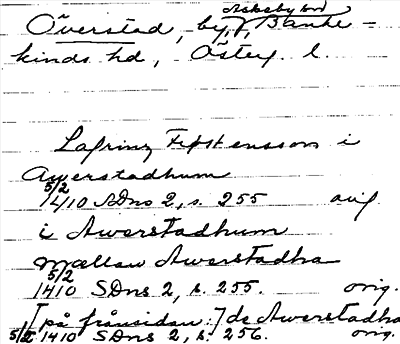 Askeby sn
Överstad, by, Banke-
kinds hd, Österg. l.
Lafrinz Fastensson i
Awerstadhum
5/2 1410 SDns 2, s. 255 avig
i Awerstadhum
mællan Awerstadha
5/2 1410 SDns 2, s. 255. orig.
[på frånsidan:] de Awerstadha
5/2 1410 SDns 2, s. 256. orig.